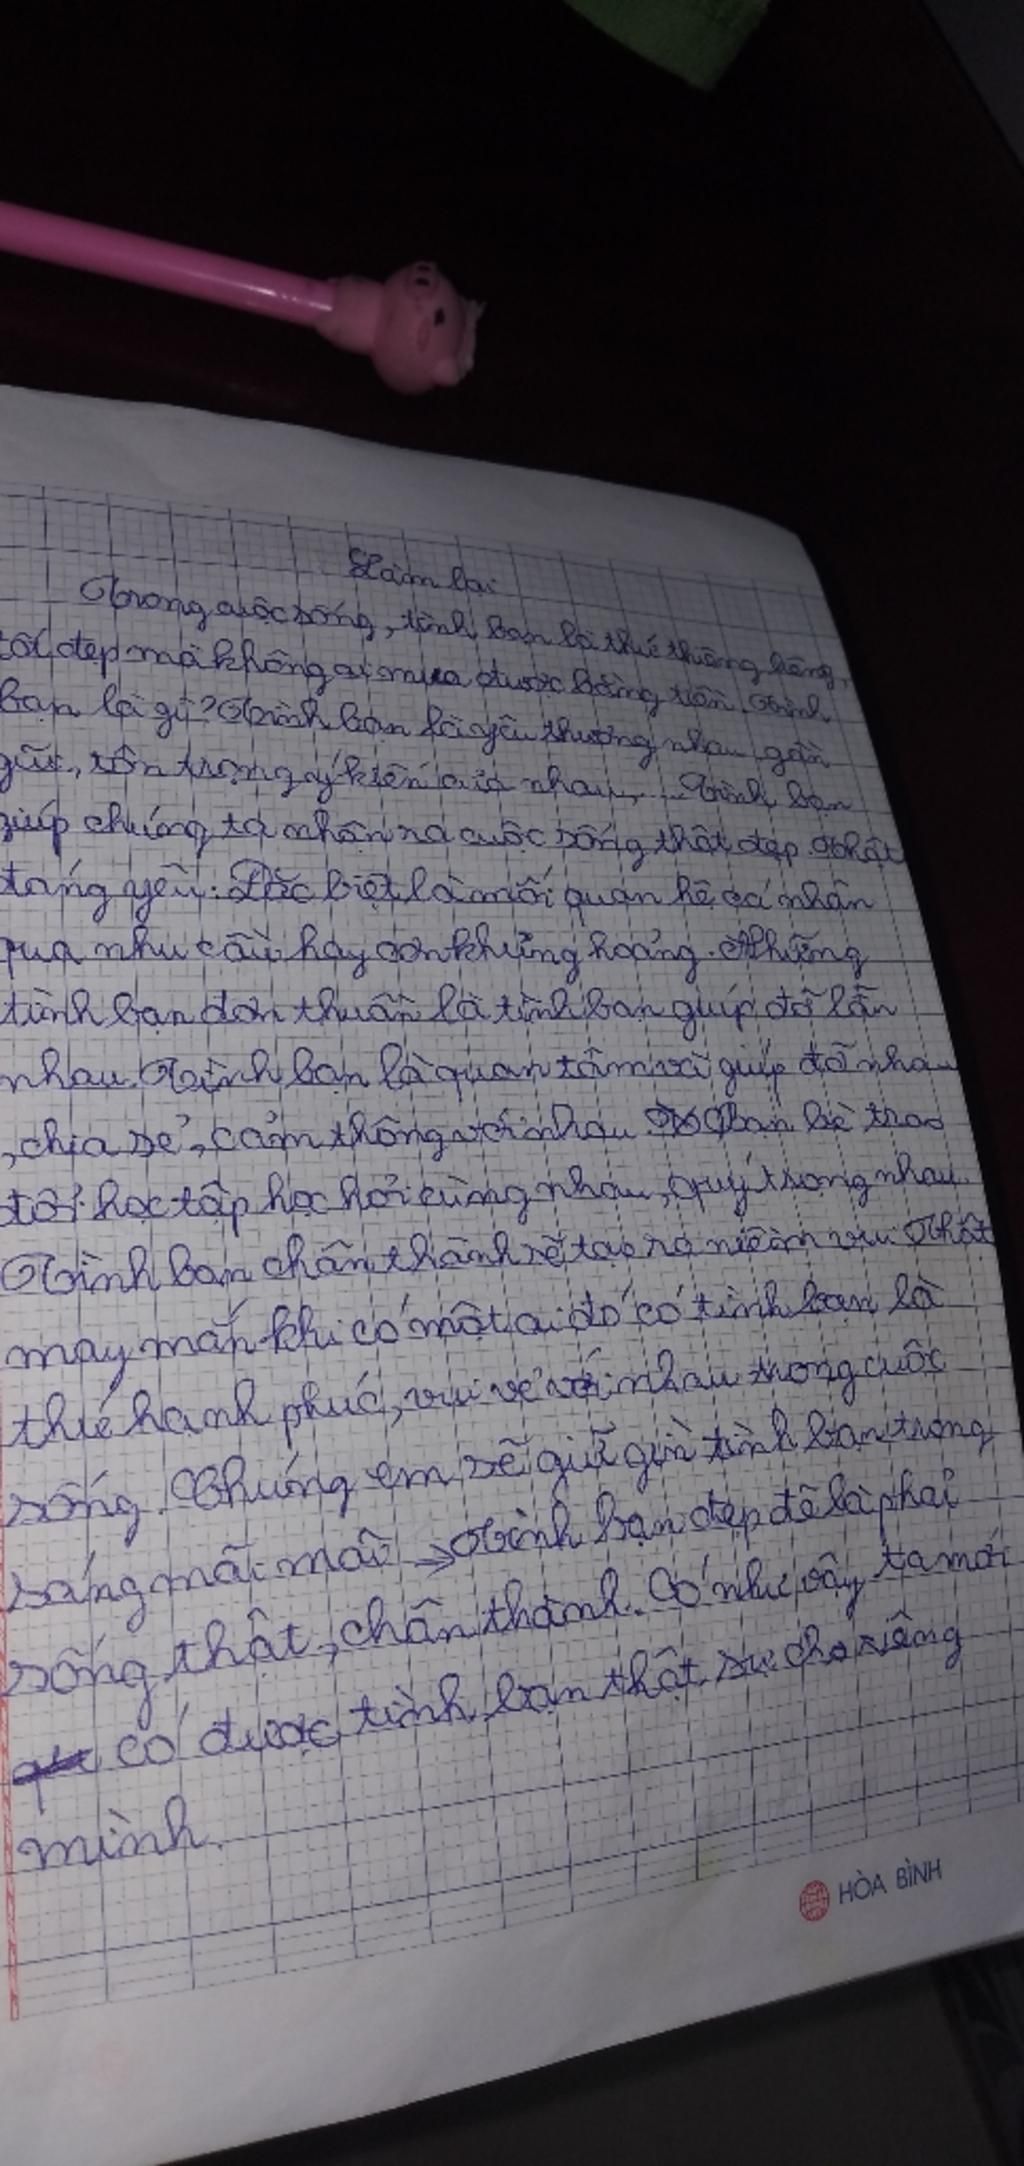 Làm lại
Trong cuộc sống, tình bạn là thứ thiêng liêng,
tốt đẹp mà không ai mua được bằng tiền. Tình
bạn là gì? Tình bạn là yêu thương nhau, gần
gũi, tôn trọng ý kiến của nhau,... Tình bạn
giúp chúng ta nhận ra cuộc sống thật đẹp. Thật
đáng yêu. Đặc biệt là mối quan hệ cá nhân
qua nhu cầu hay cơn khủng hoảng. Những
tình bạn đơn thuần là tình bạn giúp đỡ lẫn
nhau. Tình bạn là quan tâm và giúp đỡ nhau
, chia sẻ, cảm thông với nhau. Bạn bè trao
đổi học tập học hỏi cùng nhau, quý trọng nhau.
Tình bạn chân thành sẽ tạo ra niềm vui. Thật
may mắn khi có một ai đó có tình bạn là
thứ hạnh phúc, vui vẻ với nhau trong cuộc
sống. Chúng em sẽ giữ gìn tình bạn trong
sáng mãi mãi → Tình bạn đẹp đẽ là phải
sống thật, chân thành. Có như vậy ta mới
có được tình bạn thật sự cho riêng
mình.
HÒA BÌNH